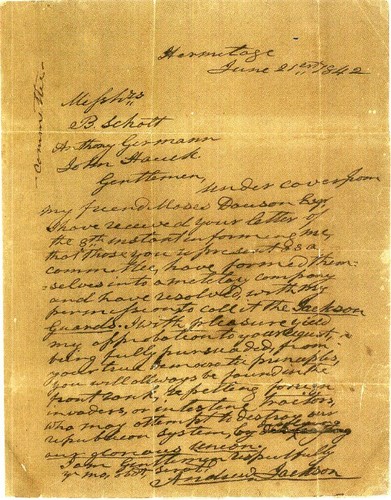 Hermitage
June 21st 1842
Committee
Messrs
B. Schott
Anthony Germann
John Hauck.
Gentlemen,
under cover from
my friend Moses Dawson Esqr,
I have received your letter of
the 8th instant informing me,
that those you represent as a
committee, have formed them-
selves into a military company
and have resolved, with my
permission to call it the Jackson
Guards. I with pleasure yield
my approbation to your request,
being fully persuaded, from
your true democratic principles,
you will always be found in the
front rank, repelling foreign
invaders, or internal traitors,
who may attempt to destroy our
republican system, by
our glorious
I am Gentlemen respectfully
yr mo, obdt servt
Andrew Jackson